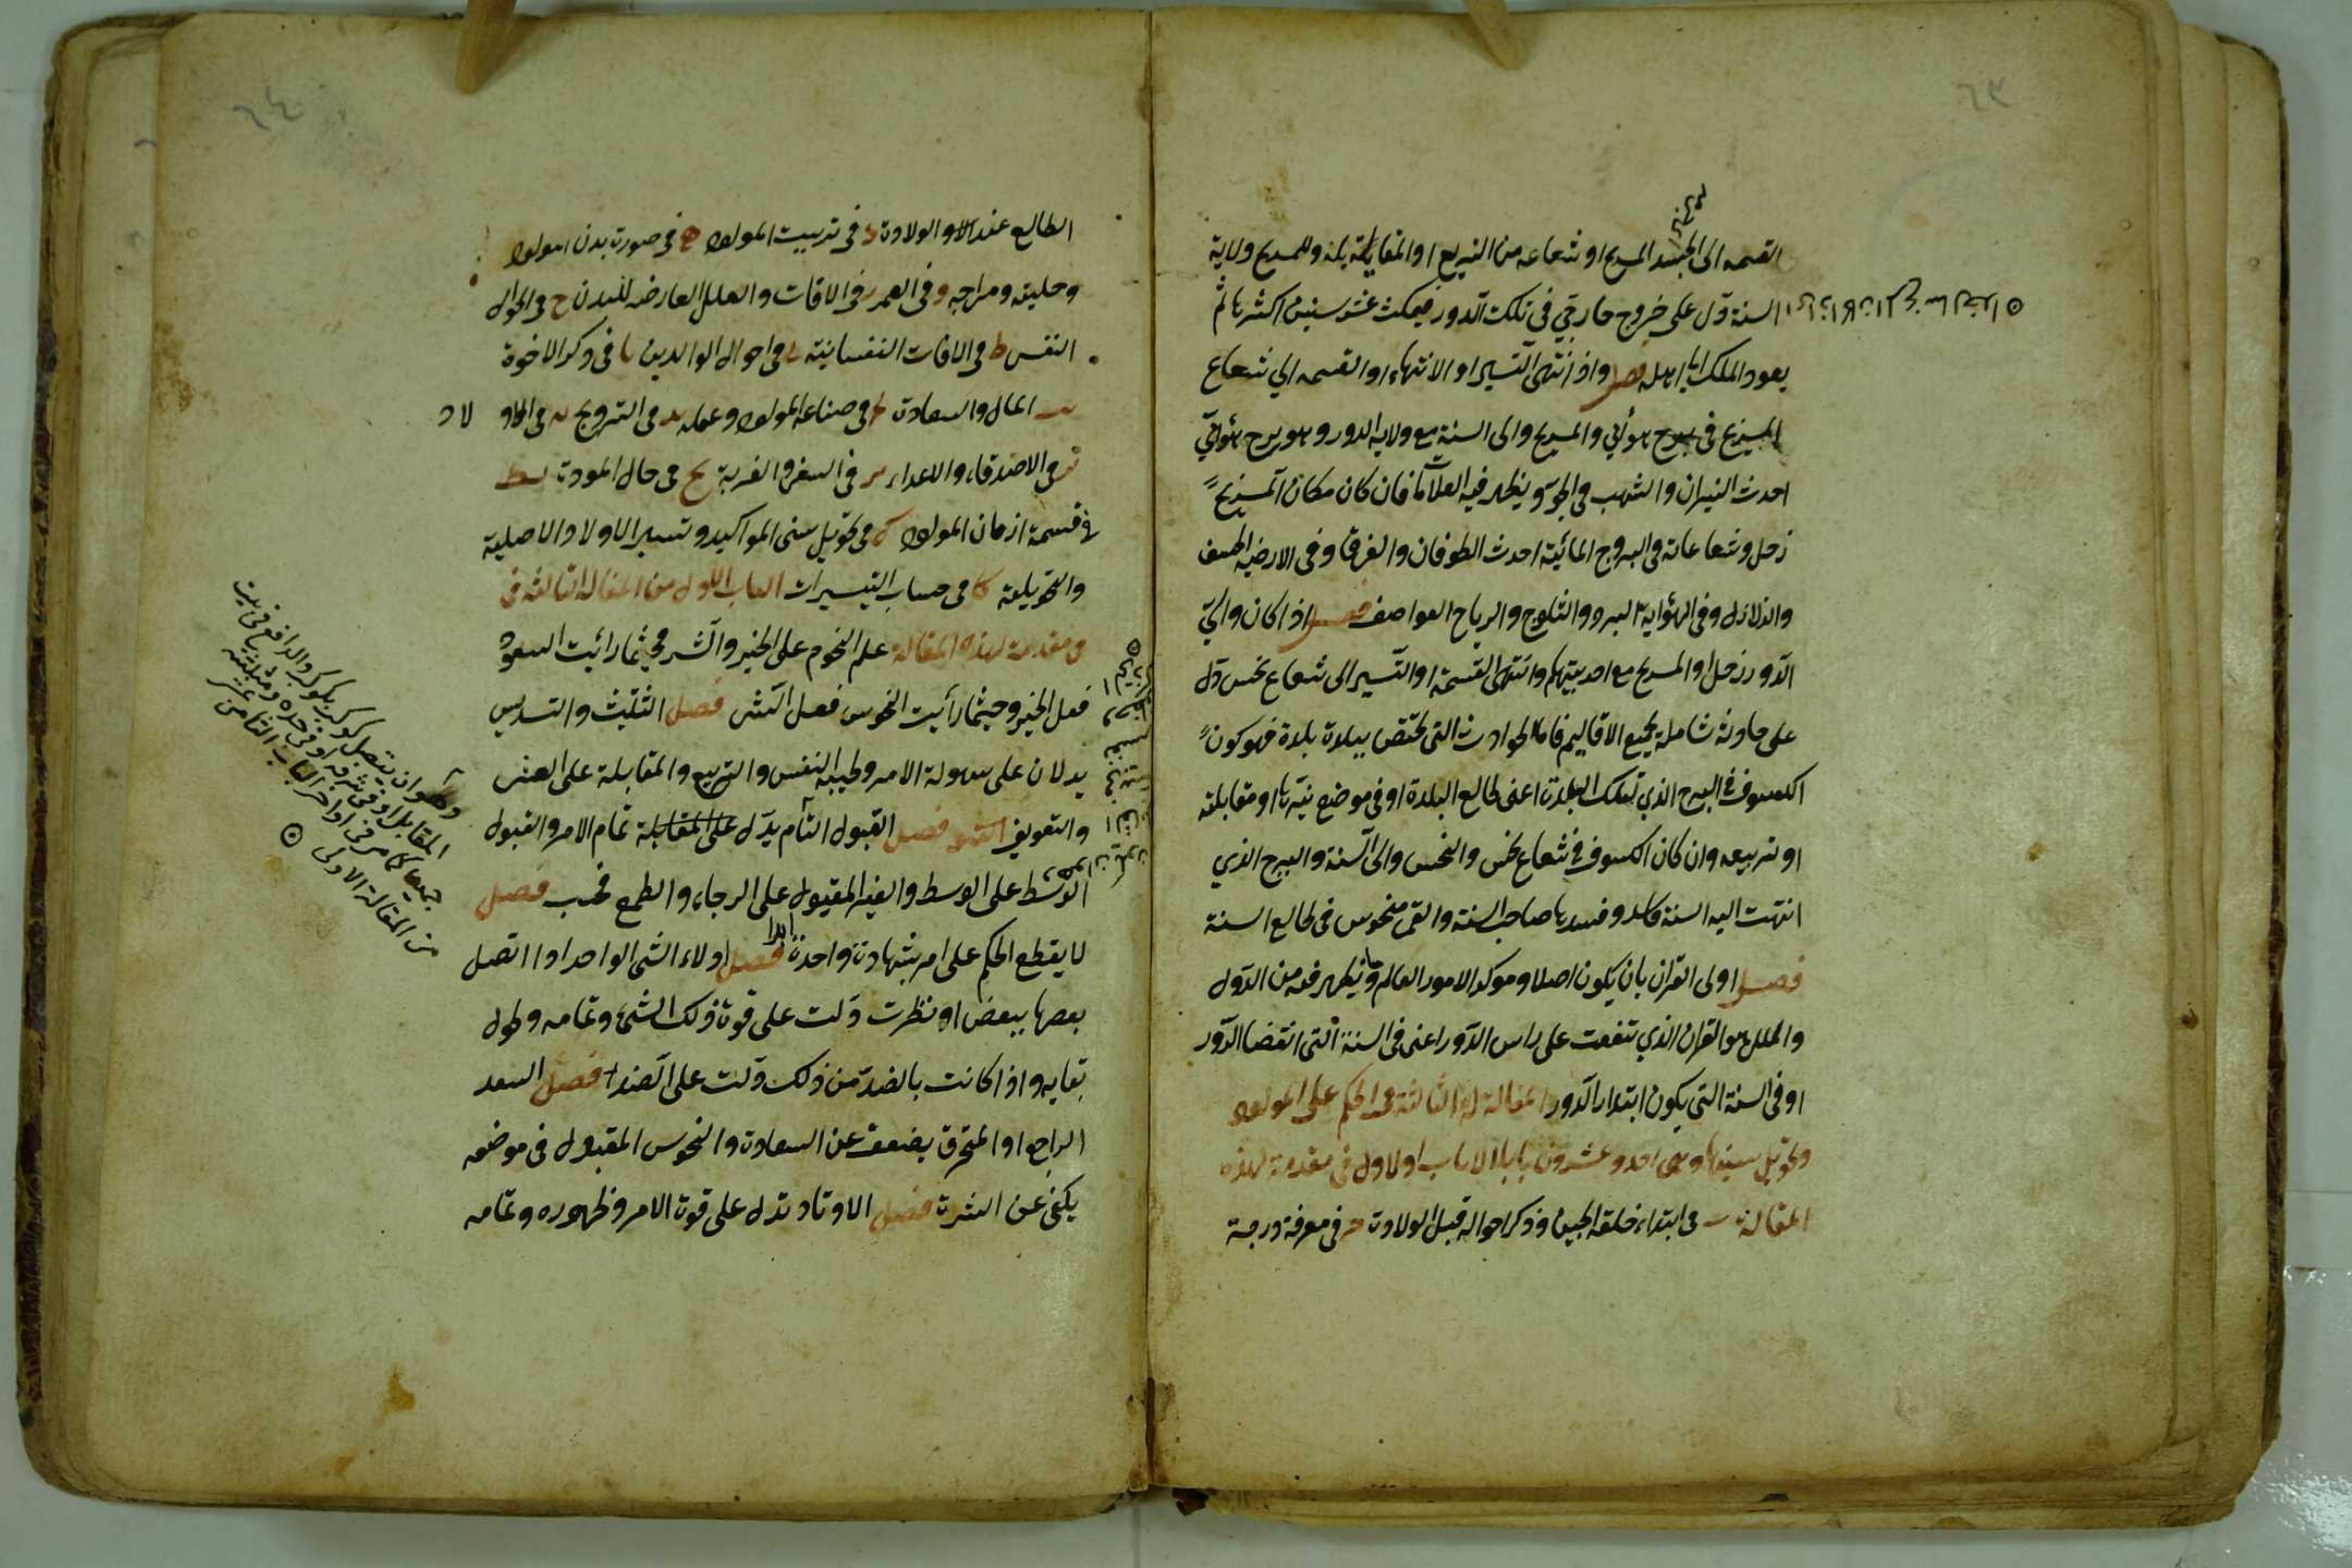 ٦٣
القسمه الى الجسد المريخ او شعاعه من التربيع او المقابلة بلد وللمريخ ولاية
السنة دل على خروج خارجي في تلك الدور فيمكث عشر سنين اكثرها ثم
يعود الملك الى اهله فصل واذ انتهى التسيير او الانتهاء او القسمه الى شعاع
المريخ في برج هوائي والمريخ والى السنة مع ولاية الدور وهو برج هوائي
احدث النيران والشهب في الجو ويظهر فيه العلامات فان كان مكان المريخ
زحل وشعاعاته في البروج المائية احدث الطوفان والغرق وفي الارضية الخسف
والزلازل وفي الهوائية البرد والثلوج والرياح العواصف فصل اذا كان والي
الدور زحل او المريخ مع احديتهم وانتهى القسمة او التسيير الى شعاع نحس دل
على حادثة شاملة لجميع الاقاليم فاما الحوادث التي تختص ببلدة بلدة فهو كون
الكسوف في البرج الذي لتلك البلدة اعنى طالع البلدة او في موضع نيرها او مقابلته
او تربيعه وان كان الكسوف في شعاع نحس والنحس والى السنة والبرج الذي
انتهت اليه السنة فاسد وفسد بها صاحب السنة والقمر منحوس في طالع السنة
فصل اولى القران بان يكون اصلا وموكدا لامور العالم وما يظهر فيه من الدول
والملل هو القران الذي يتفقت على راس الدور اعنى في السنة التي انقضا الدور
او في السنة التي يكون ابتداء الدور المقالة الثالثة في الحكم على المولود
وتحويل سنيها وهي احد وعشرون بابا الباب اولاول في مقدمة لهذه
المقالة ب في ابتداء خلقه الجنين وذكر احواله قبل الولادة ح في معرفة درجة
٦٤
الطالع عند الولادة د في تربيت المولود ه في صورت بدن المولود
وحليته ومزاجه و في العمر ز في الافات والعلل العارضه للبدن ح في احوال
النفس ط في الافات النفسانية ي في احوال الوالدين يا في ذكر الاخوة
يب المال والسعادت يج في صناعة المولود وعمله يد في التزويج يه في الاولاد
يو في الاصدقاء والاعداء يز في السفر والغربة يح في حال الموت يط
في قسمة ازمان المولود ك في تحويل سنى المواليد وتسيير الاولاد الاصلية
والتحويلية كا في حساب التسييرات الباب الاول من المقالة الثالثة في
في مقدمة لهذه المقالة علم النجوم على الخير والشر فحيثما رائيت السعود
فعل الخير وحيثما رأيت النحوس فعل الشر فصل التثليث والتسديس
يدلان على سهولة الامر وطيبة النفس والتربيع والمقابلة على العسر
والتعويق فصل القبول التام يدل على المقابلة تمام الامر والقبول
الوسط على الوسط والغير المقبول على الرجاء والطمع فحسب فصل
لا يقطع الحكم على امر بشهادة واحدة ابدا فصل اولاء الشئ الواحد اذا اتصل
بعضها ببعض او نظرت دلت على قوة ذلك الشئ وتمامه وطول
بقايه واذا كانت بالضد من ذلك دلت على الضد فصل السعد
الراجع او المحترق يضعف عن السعادة والنحوس المقبول في موضعه
يكف عن الشر فصل الاوتاد تدل على قوة الامر وظهوره وتمامه
وهو ان يتصل كوكب بكوكب والدافع في بيت
المقابل او في شرفه او في حده ومثلثته
جميعا كما مر في اواخر الباب الثامن عشر
من المقالة الاولى